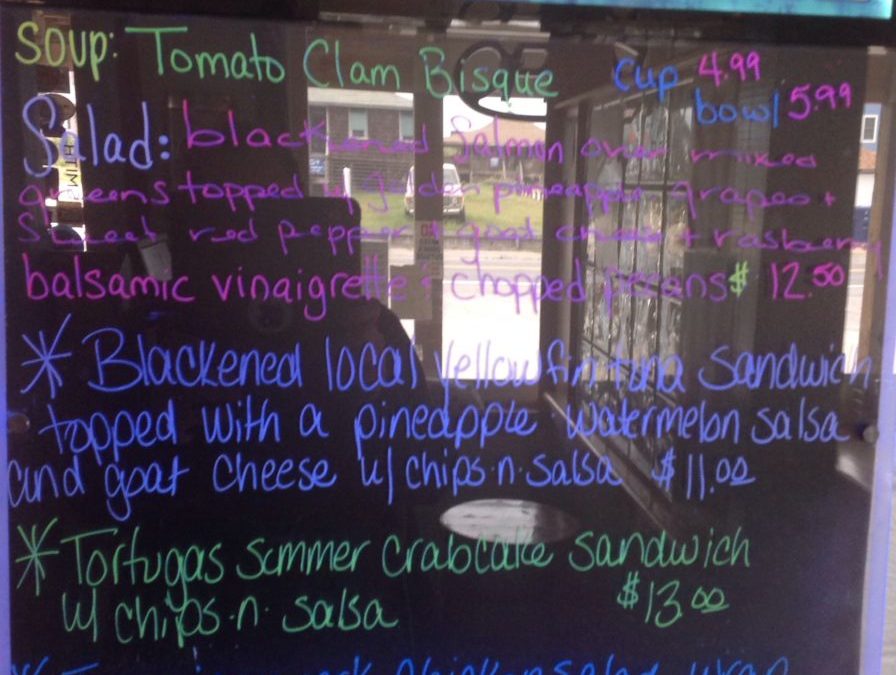 SOUP: Tomato Clam Bisque cup 4.99
bowl 5.99
Salad: blackened Salmon over mixed
greens topped w/ golden pineapple grapes +
sweet red pepper + goat cheese + rasberry
balsamic vinaigrette + chopped pecans $ 12.50
* Blackened local yellowfin tuna sandwich
topped with a pineapple watermelon salsa
and goat cheese w/ chips·n·salsa $11.00
* Tortugas summer crabcake sandwich
w/ chips·n· salsa $13.00
Salad wrap